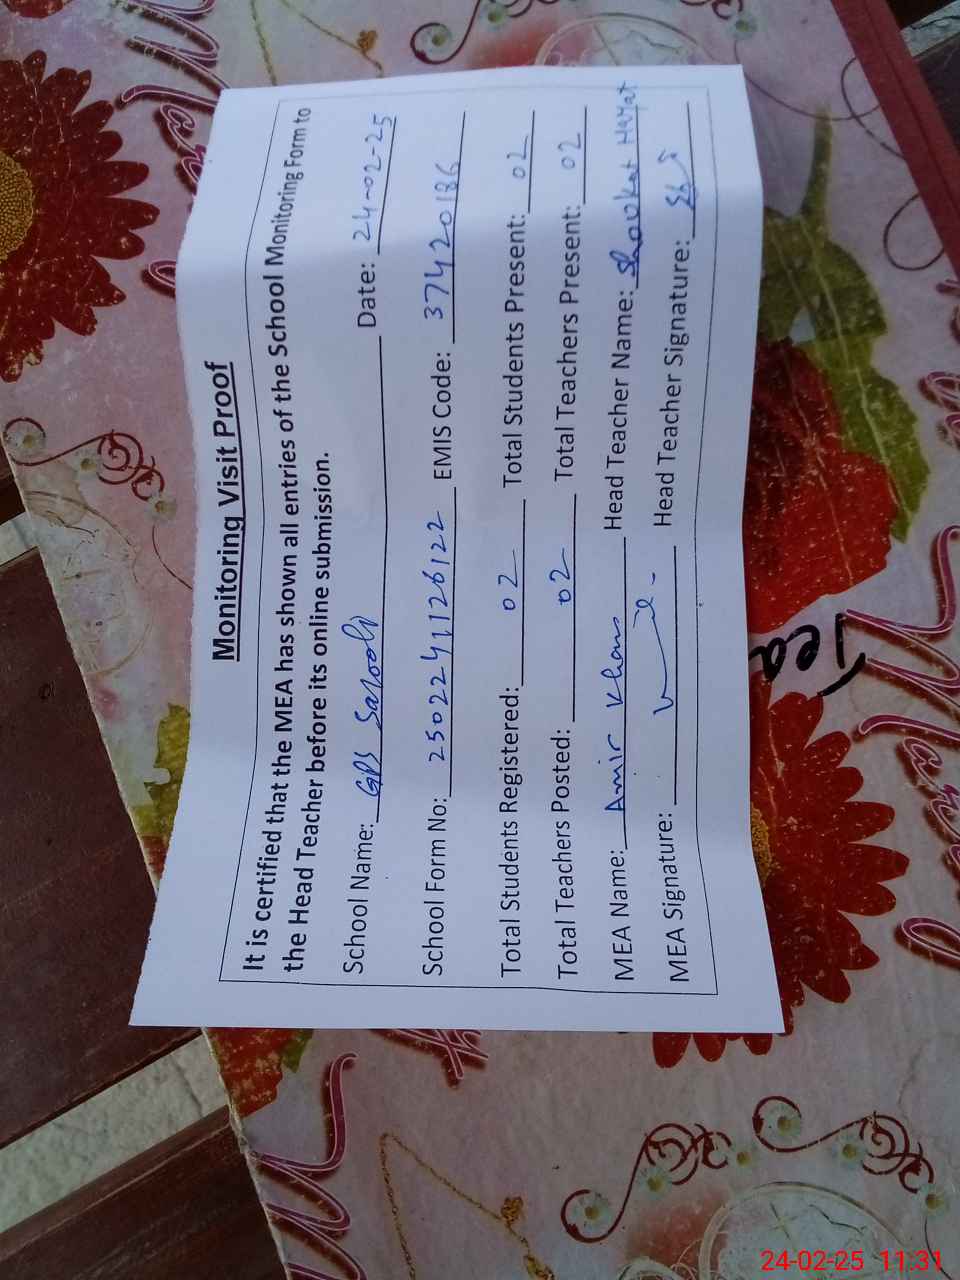 Monitoring Visit Proof
It is certified that the MEA has shown all entries of the School Monitoring Form to
the Head Teacher before its online submission.
School Name: GPS Date: 24-02-25
School Form No: 2502241126122 EMIS Code: 37420186
Total Students Registered: 02 Total Students Present: 02
Total Teachers Posted: 02 Total Teachers Present: 02
MEA Name: Amir Khan Head Teacher Name: Shoukat Hayat
MEA Signature: Head Teacher Signature:
Tea
24-02-25 11:31